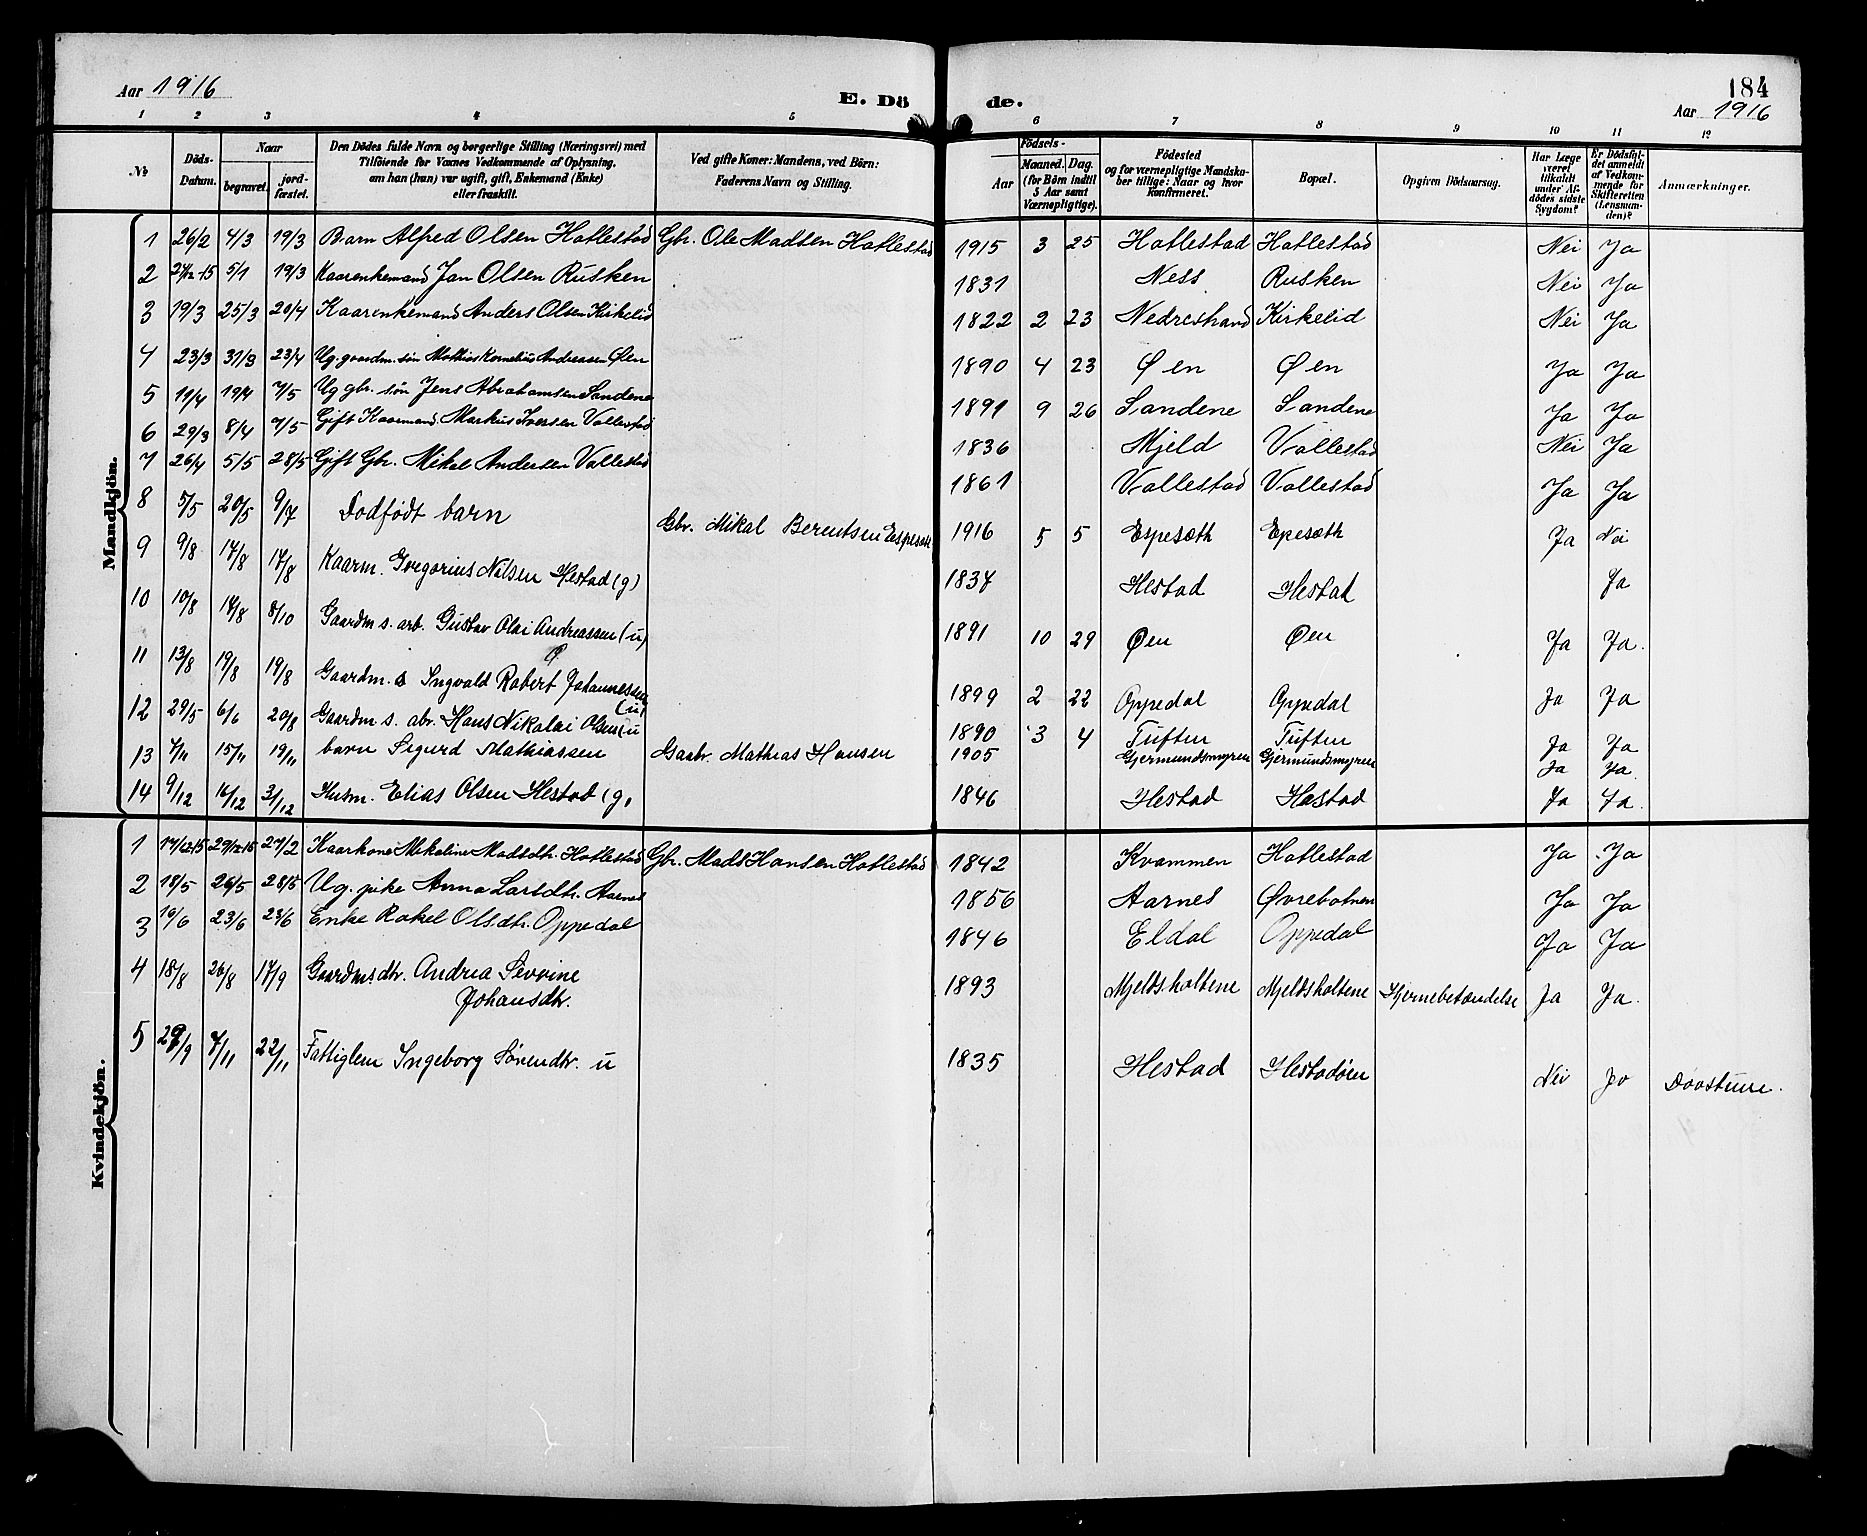 Aar 1916
E. Dö de.
184
Aar 1916
1 2 3 4 5 6 7 8 9 10 11 12
No
Döds-
Datum.
Naar
begravet.
jord-
fæstet.
Den Dödes fulde Navn og borgerlige Stilling (Næringsvei) med
Tilföiende for Voxnes Vedkommende af Oplysning,
om han (hun) var ugift, gift, Enkemand (Enke)
eller fraskilt.
Ved gifte Koner: Mandens, ved Börn:
Faderens Navn og Stilling.
Födsels-
Aar
Maaned. Dag.
(for Börn indtil
5 Aar samt
Værnepligtige).
Födested
og for værnepligtige Mandska-
ber tillige: Naar og hvor
Konfirmeret.
Bopæl.
Opgiven Dödsaarsag.
Har Læge
været
tilkaldt
under Af-
dödes sidste
Sygdom?
Er Dödsfal-
det anmeldt
af Vedkom-
mende for
Skifteretten
(Lensman-
den)?
Anmærkninger.
Mandkjön.
1 26/2 4/3 19/3 Barn Alfred Olsen Hatlestad Gbr. Ole Madsen Hatlestad 1915 3 25 Hatlestad Hatlestad Nei Ja
2 27/12-15 5/1 19/3 Kaarenkemand Jan Olsen Rusken 1831 Ness Rusken Nei Ja
3 19/3 25/3 20/4 Kaarenkemand Anders Olsen Kirkelid 1822 2 23 Nedreshand Kirkelid Nei Ja
4 23/3 31/3 23/4 Ug. gaardm. søn Mathias Kornelius Andreassen Øen 1890 4 23 Øen Øen Ja Ja
5 19/4 19/4 7/5 Ug gbr. søn Jens Abrahamsen Sandene 1891 9 26 Sandene Sandene Ja Ja
6 29/3 8/4 7/5 Gift Kaarmand Markus Iversen Vallestad 1836 Mjeld Vallestad Nei Ja
7 26/4 5/5 28/5 Gift Gbr. Mikal Andersen Vallestad 1861 Vallestad Vallestad Ja Ja
8 5/5 20/5 9/7 Dødfødt barn Gbr. Mikal Berentsen Espeseth 1916 5 5 Espesæth Epesæth Ja Nei
9 9/8 17/8 17/8 Kaarm. Gregorius Nilsen Hestad (g) 1837 Hestad Hestad Ja
10 10/8 17/8 8/10 Gaardm s. arb. Gustav Olai Andreassen (u) 1891 10 29 Øen Øen Ja Ja.
11 13/8 19/8 19/8 Gaardm. s Ingvald Robert Johannessen (u) 1899 2 22 Oppedal Oppedal Ja Ja
12 29/5 6/6 20/8 Gaardm s. abr. Hans Nikolai Olsen (u 1890 3 4 Tuften Tuften Ja Ja
13 7/11 15/11 19/11 barn Sigurd Mathiassen Gaabr. Mathias Hansen 1905 Gjermundsmyren Gjermundsmyren Ja Ja.
14 9/12 16/12 31/12 Husm. Elias Olsen Hestad (g, 1846 Hestad Hestad Ja Ja.
Kvindekjön.
1 17/12-15 29/12-15 27/2 Kaarkone Mikaline Madsdtr. Hatlestad Gbr. Mads Hansen Hatlestad 1842 Kvammen Hatlestad Ja Ja
2 18/5 26/5 28/5 Ug. pike Anna Larsdtr. Aarnes 1856 Aarnes Øvrebotnen Ja Ja
3 16/6 23/6 23/6 Enke Rakel Olsdtr. Oppedal 1846 Eldal Oppedal Ja Ja
4 18/8 26/8 17/9 Gaardmsdtr. Andrea Severine
Johansdtr. 1893 Mjeldsholtene Mjeldsholtene Hjernebetændelse Ja Ja.
5 29/9 7/11 22/11 Fattiglem Ingeborg Sørendtr. u 1835 Hestad Hestadøien Nei Ja